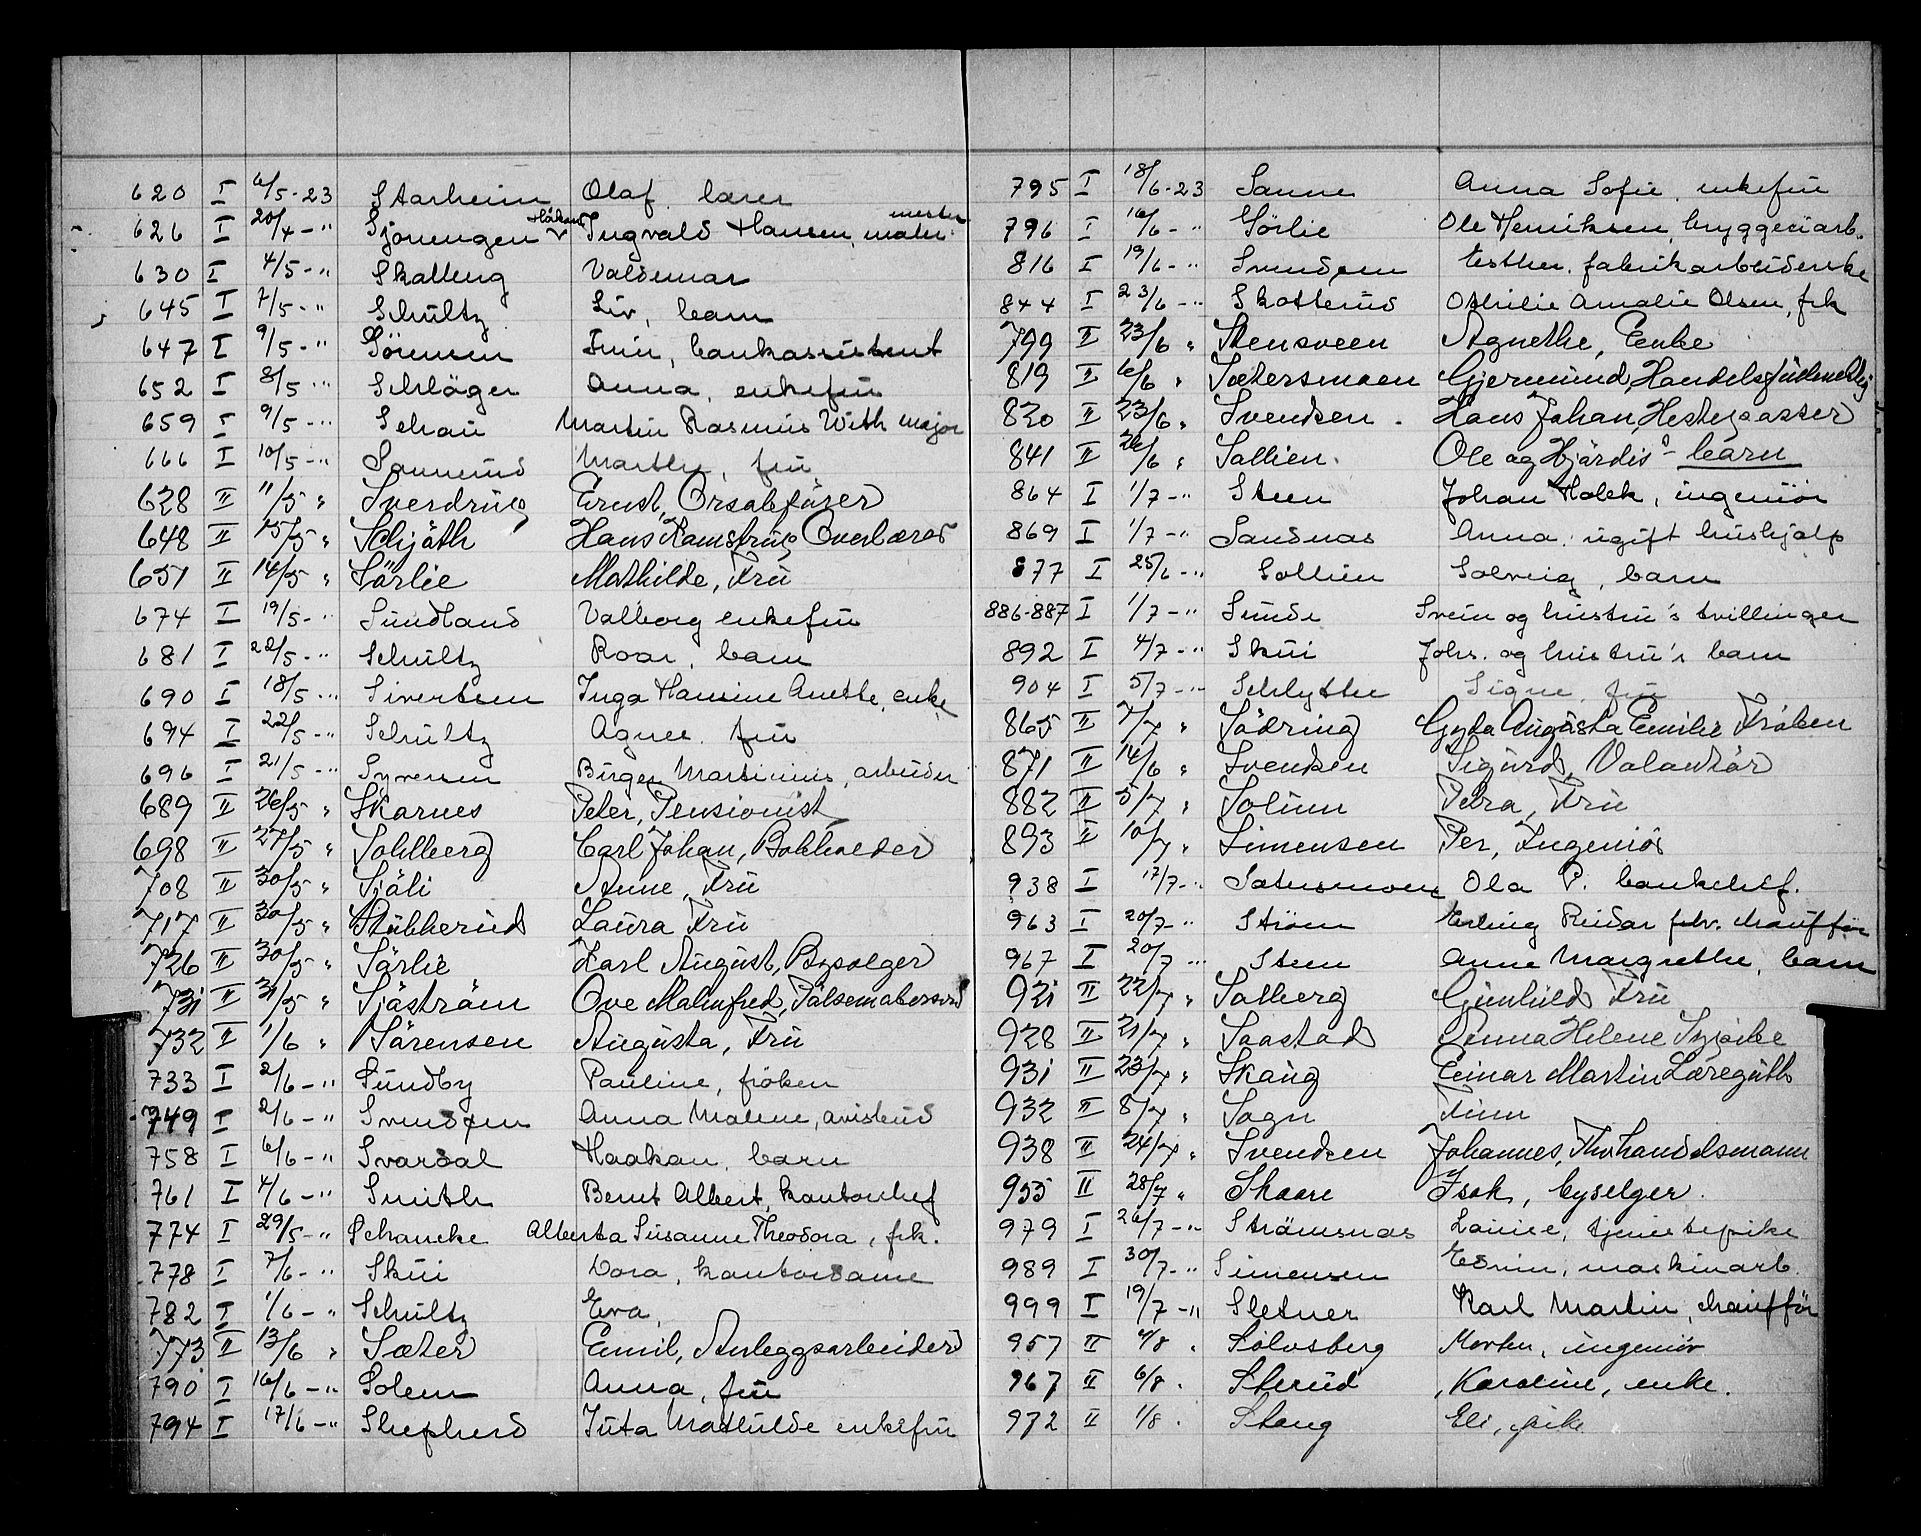 620 I 6/5-23 Starheim Olaf lærer
626 I 20/4 - " Sjøuengen Håkon Ingvald Hansen, maler mester
630 I 4/5 - " Skalleng Valdemar
645 I 7/5 - " Schultz Liv, barn
647 I 9/5 - " Sörensen Finn, bankassistent
652 I 8/5 - " Schläger Anna, enkefru
659 I 9/5 - " Schau Martin Rasmus With major
666 I 10/5 - " Sannerud Marthe, fru
628 II 11/5 " Sverdrup Ernst,
648 II 15/5 " Schjöth Hans Ramstrup Overlærer
651 II 14/5 " Sörlie Mathilde, Fru
674 I 19/5 - " Sundland Valborg enkefru
681 I 22/5 - " Schultz Roar, barn
690 I 18/5 - " Sivertsen Inga Hansine Anette, enke
694 I 22/5 - " Schultz Agnes. fru
696 I 21/5 - " Syversen Birger Martinius, arbeider
689 II 26/5 " Skarnes Peter, Pensionist
698 II 27/5 " Sohlberg Carl Johan, Bokholder
708 II 30/5 " Sjöli Anne, Fru
717 II 30/5 " Stubberud Laura Fru
726 II 30/5 " Sörlie Karl August, Byselger
731 II 31/5 " Sjöström Ove Malmfred, Pölsemakersvend
732 II 1/6 " Sörensen Augusta, Fru
733 I 2/6 - " Sundby Pauline, fröken
749 I 2/6 - " Svendsen Anna Malene, avisbud
758 I 6/6 - " Svardal Haakan, barn
761 I 4/6 - " Smith Bernt Albert, kontorchef
774 I 29/5 - " Schancke Alberta Susanne Theodora, frk.
778 I 7/6 - " Skui Dora, kontordame
782 I 1/6 - " Schultz Eva,
773 II 13/6 " Sæter Emil, Anleggsarbeider
790 I 16/6 - " Solem Anna, fru
794 I 17/6 - " Shepherd Juta Mathilde enkefru
795 I 18/6-23 Sanne Anna Sofie enkefru
796 I 16/6 - " Sörlie Ole Henriksen, bryggeriarb.
816 I 19/6 - " Svendsen Esther. fabrikarbeiderske
844 I 23/6 - " Skotterud Othilie Amalie Olsen, frk
799 II 23/6 " Stensveen Agnethe, Enke
819 II 6/6 " Sætersmoen Gjermund, Handelsfuldmektig
820 II 23/6 " Svendsen. Hans Johan, Hestepasser
841 II 26/6 " Sollien. Ole og Hjördis' barn
864 I 1/7 - " Steen Johan Holck, ingeniör
869 I 1/7 - " Sandnas Anna. ugift hushjalp
877 I 25/6 - " Sollien Solveig, barn
886-887 I 1/7 - " Sunde Svein og hustru's tvillinger
892 I 4/7 - " Skui Johs. og hustru's barn
904 I 5/7 - " Schlytter Signe, fru
865 II 7/7 " Södring Gyda Augusta Emilie Fröken
871 II 14/6 " Svendsen Sigurd, Volontör
882 II 5/7 " Solum Petra, Fru
893 II 10/7 " Simensen Per, Ingeniör
938 I 17/7 - " Sætersmoen Ola P. bankchef.
963 I 20/7 - " Ström Erling Reidar fhv. chauffør
967 I 20/7 " Steen Anne Margrethe, barn
921 II 22/7 " Solberg Gunhild Fru
928 II 21/7 " Saastad Anna Helene
931 II 23/7 " Skaug Einar Martin Læregutt
932 II 8/7 " Sogn Finn
938 II 24/7 " Svendsen Johannes, Fhv.handelsmann
955 II 28/7 " Skaare Isak, byselger.
979 I 26/7 - " Strömsnas Louise, tjenestepike
989 I 30/7 - " Simensen Edvin, maskinarb.
999 I 19/7 - " Sletner Karl Martin, chauffør
957 II 4/8 " Sölvsberg Morten, ingeniör
967 II 6/8 . Sterud Karoline, enke.
972 II 1/8 . Stang Eli, pike